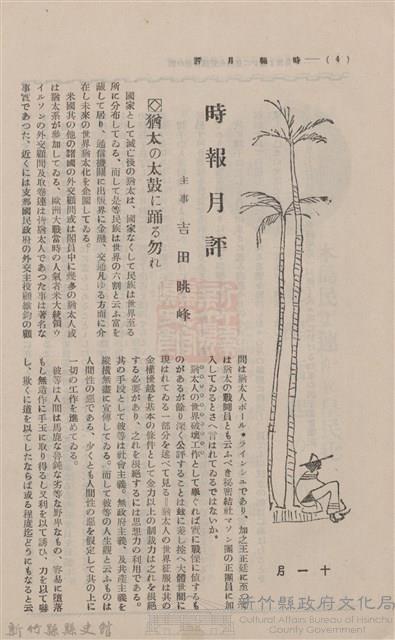 (4)——時報月評
時報月評
主事 吉田眺峰
◇猶太の太鼓に踊る勿れ
國家として滅亡後の猶太は、國家なくして民族は世界至る
所に分布してゐる、而して是等民族は世界の六割と云ふ富を
藏して居り、通信機關に出版界に金融、交通凡ゆる方面に介
在し未來の世界猶太化を企圖してゐる。
米國其の他の諸國の外交顧問或は閣員中に幾多の猶太人或
は猶太系が參加してゐる、歐洲大戰當時の人氣者米大統領ウ
イルソンの外交顧問及取卷連は皆猶太人であつた事は著名な
事實であつた、近くには支那國民政府の外交主役顧維鈞の顧
問は猶太人ポール・ラインシユであり、加之王正廷に至
は猶太の戰鬪員とも云ふべき秘密結社マソン團の正團員に加
入してゐるとさへ言はれてゐるではないか。
猶太人の世界破壞工作として擧ぐれば實に戰慄に値するも
のがあるが餘り深く公評することは玆に差し控へ大體世間に
現はれてゐる一部分を述べて見る、猶太人の世界征服は其の
金權優越を基本的條件として金力以上の制裁力は之れを根絶
する必要があり、之れを根絶するには思想力の利用である。
其の手段として彼等は社會主義。無政府主義、及共產主義を
縱橫無盡に宣傳してゐる。而して彼等の人生觀と云ふものは
人間性の惡である、少くとも人間性の惡を假定して其の上に
一切の工作を進めてゐる。
彼等は人間は馬鹿な魯鈍な劣等な野卑なもの、容易に墮落
もし無造作に手玉に取り得るし又利を以て誘ひ、力を以て嚇
し、欺くに道を以てしたならば或る程度迄どうにもなると云
十一月
新竹縣縣史館
新竹縣政府文化局
Cultural Affairs Bureau of Hsinchu
County Government